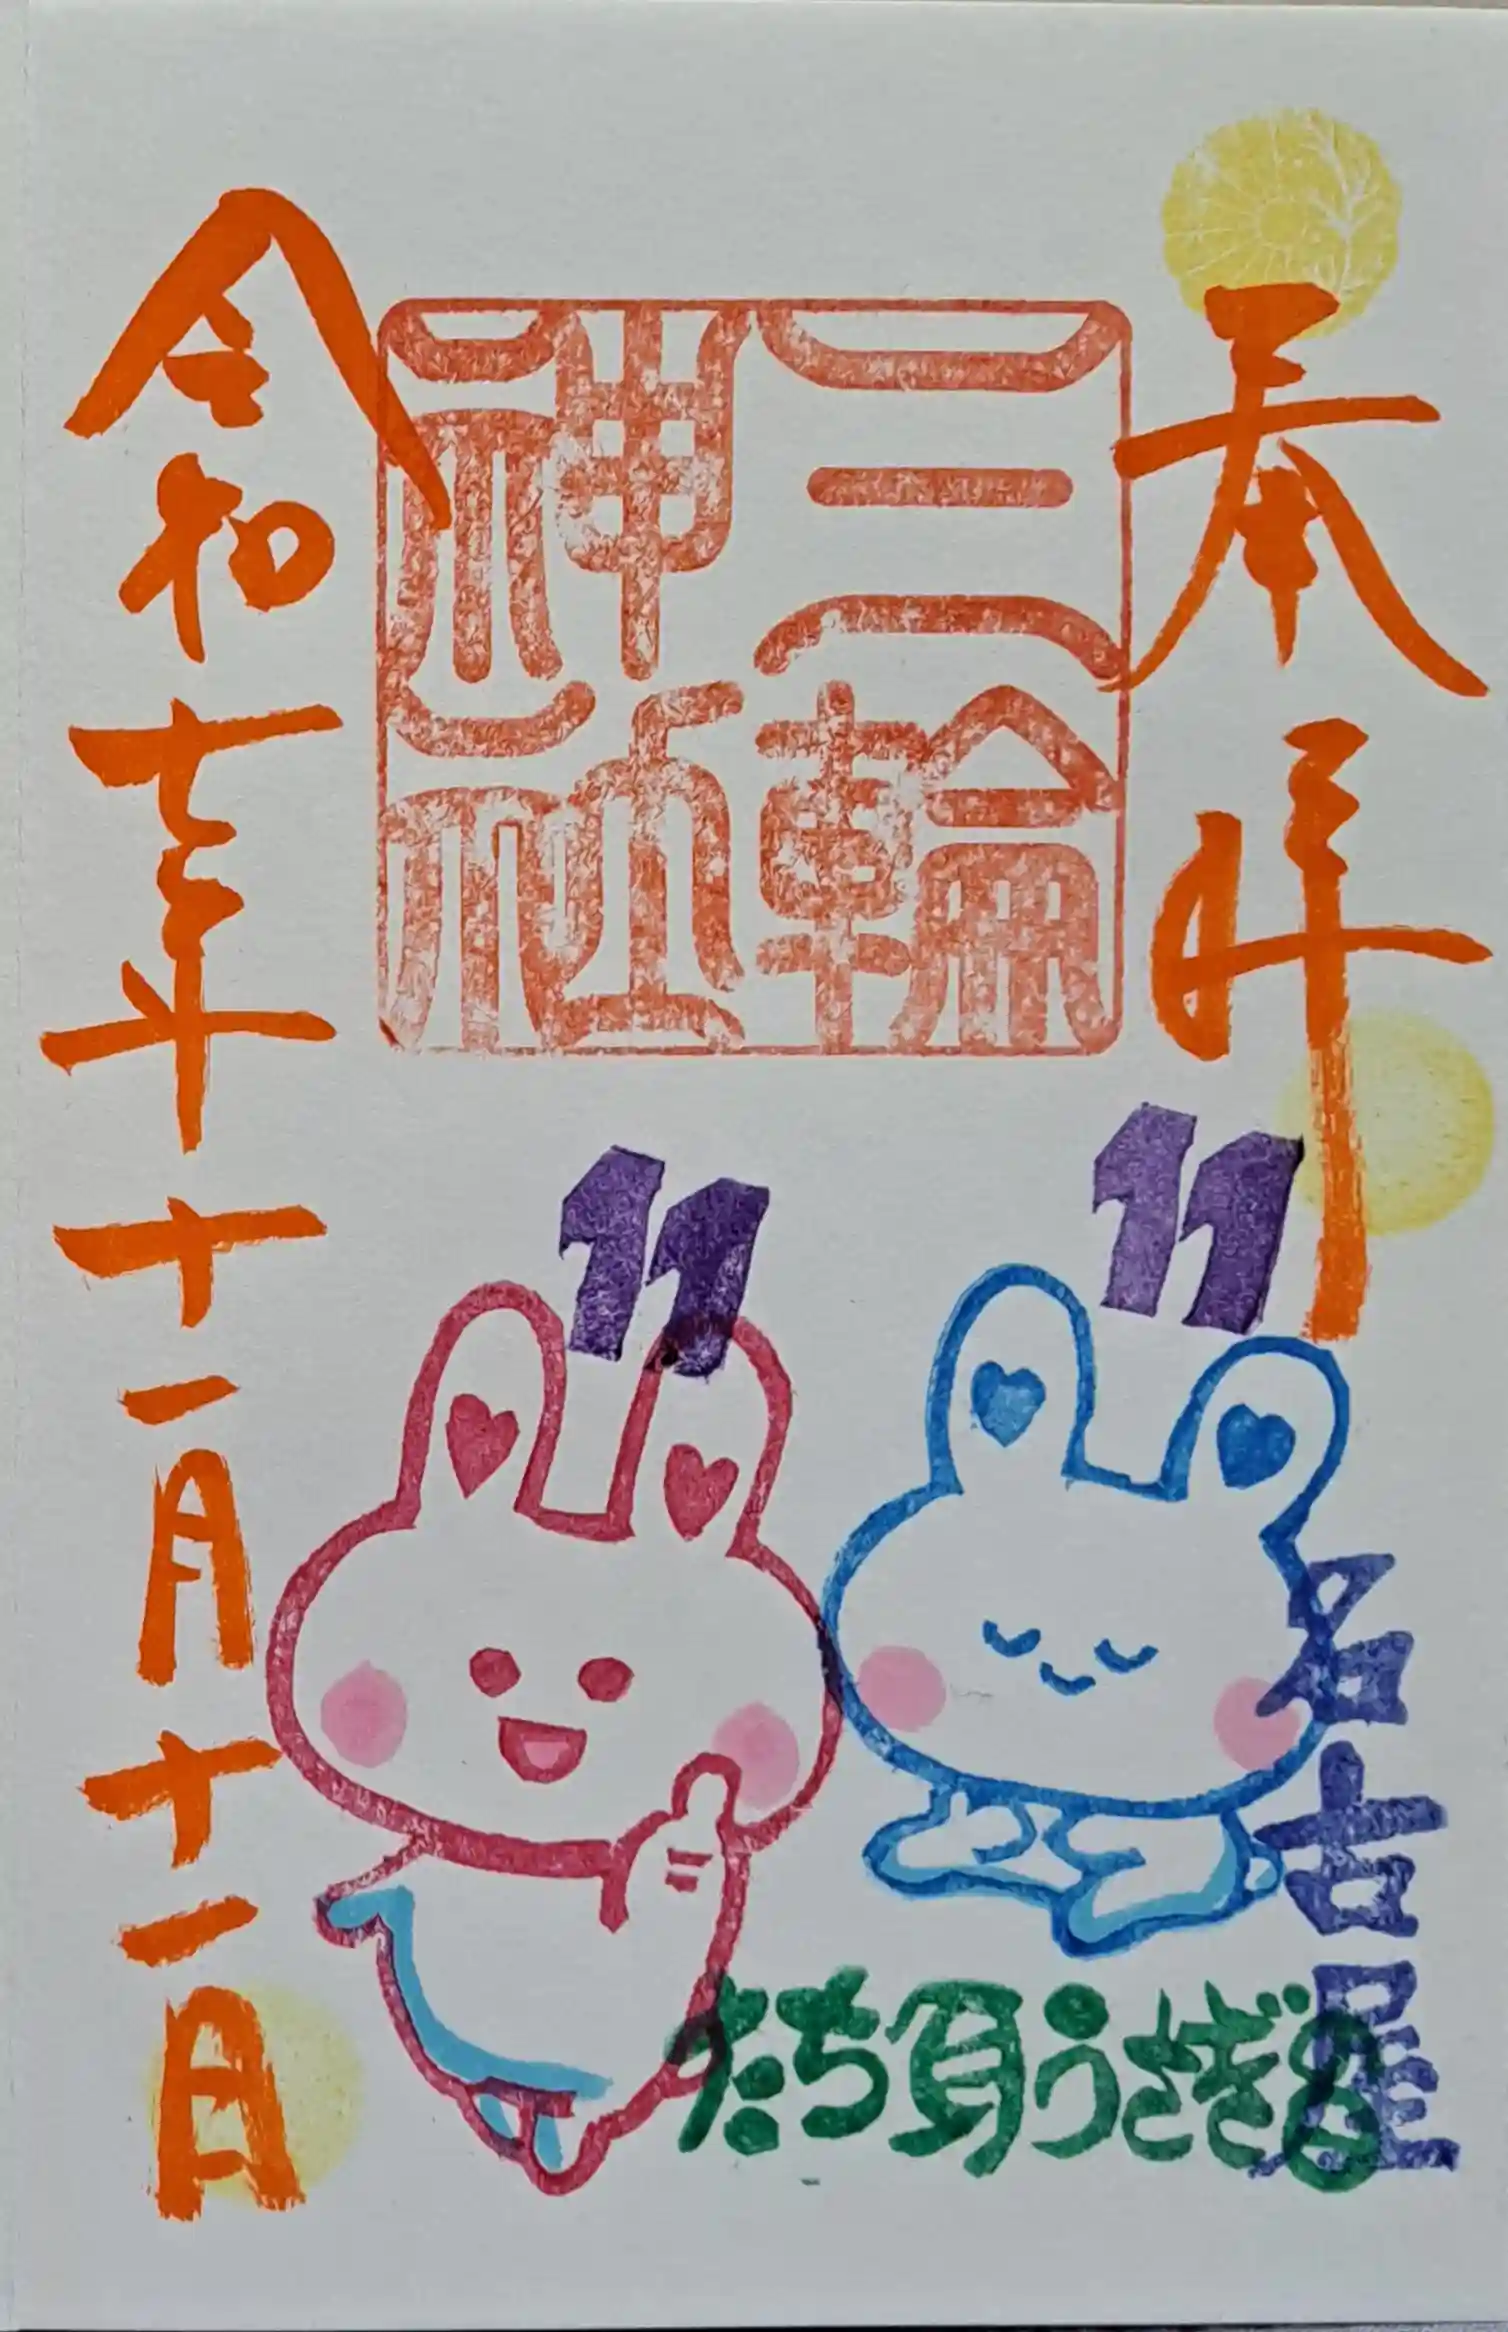 奉拝
三輪
神社
令和七年十一月十一日
11
11
名古屋
たち負うさぎ